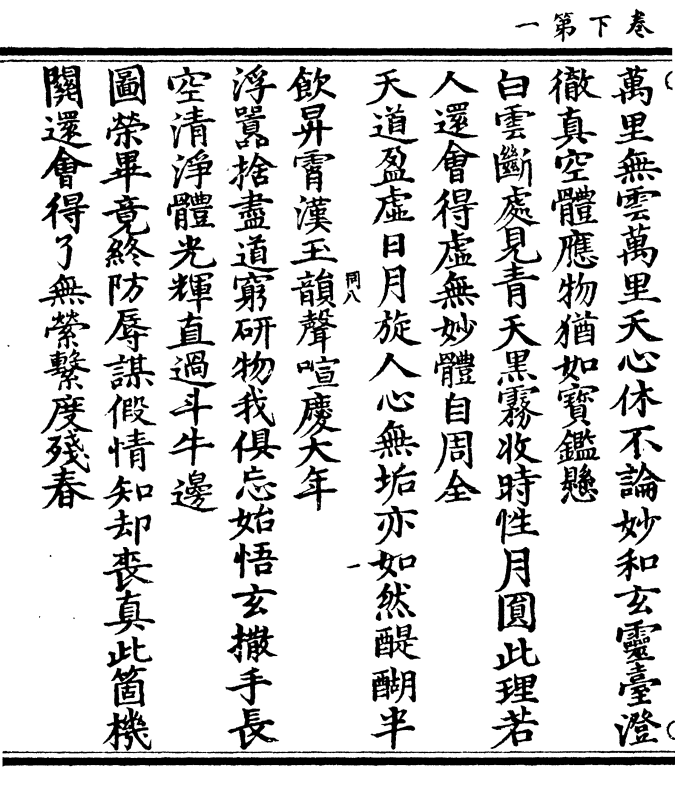 卷下第一
萬里無雲萬里天心休不論妙和玄靈臺澄
徹真空體應物猶如寶鑑懸
白雲斷處見青天黑霧收時性月圓此理若
人還會得虛無妙體自周全
天道盈虛日月旋人心無垢亦如然醍醐半
飲昇霄漢玉韻聲喧慶大年
同八
浮囂捨盡道窮研物我俱忘始悟玄撒手長
空清淨體光輝直過斗牛邊
圖榮畢竟終防辱謀假情知却喪真此箇機
關還會得了無縈繫度殘春